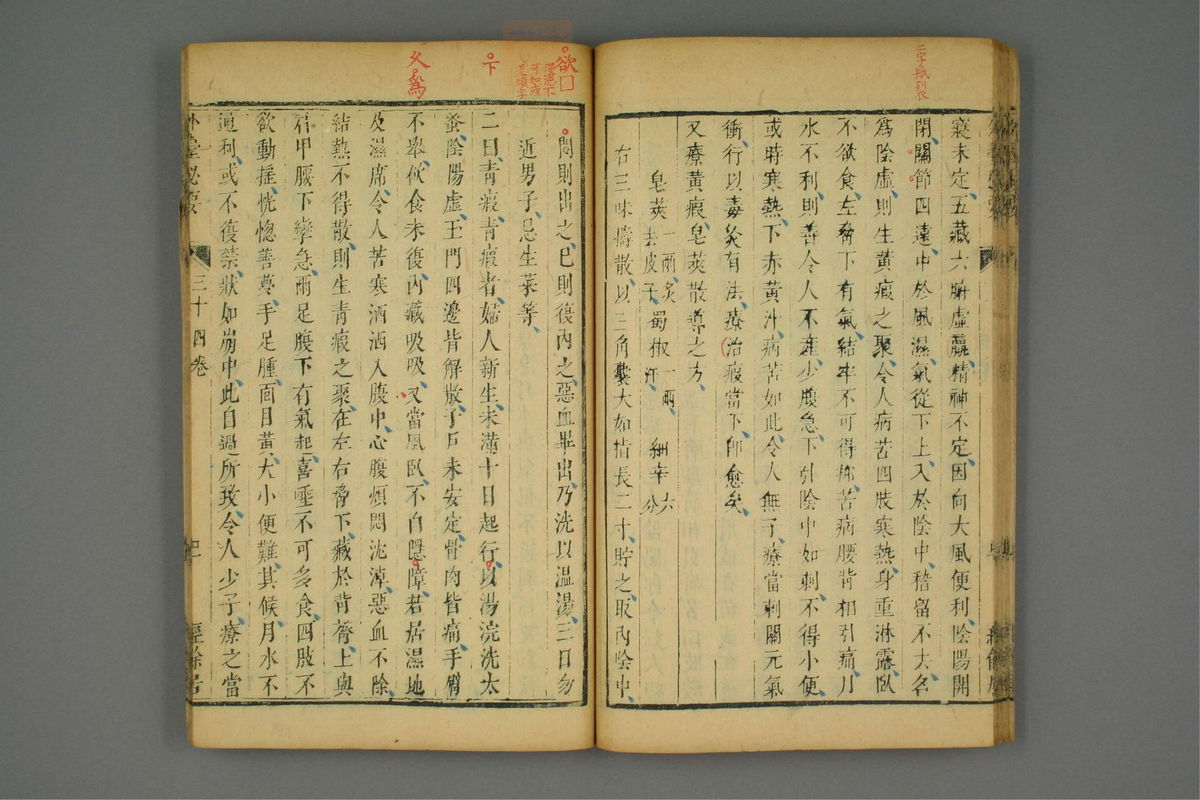 竅未定五藏六腑虛羸精神不定因向大風便利陰陽開
閉關節四遠中於風濕氣從下上入於陰中稽留不大名
為陰虛則生黃瘕之聚令人病苦四肢寒熱身重淋露臥
不欲食左脅下有氣結牢不可得抑苦病腰背相引痛月
水不利則善令人不產少腹急下引陰中如刺不得小便
或時寒熱下赤黃汁病苦如此令人無子療當刺關元氣
衝行以毒灸有法療治瘕當下即愈矣
又療黃瘕皂莢散導之方
皂莢一兩炙去皮子 蜀椒一兩汗 細辛六分
右三味擣散以三角囊大如指長二寸貯之取內陰中
欲口
悶則出之已則復內之惡血畢出乃洗以溫湯三日勿
近男子忌生菜等
下
二曰青瘕青瘕者婦人新生未滿十日起行以湯浣洗太
蚤陰陽虛玉門四邊皆解散子戶未安定骨肉皆痛手臂
不舉飲食未復內藏吸吸又當風臥不自隱障若居濕地
及濕席令人苦寒洒洒入腹中心腹煩悶沈淖惡血不除
結熱不得散則生青瘕之聚在左右脅下藏於背膂上與
肩甲腰下攣急兩足腹下有氣起喜唾不可多食四肢不
欲動搖恍惚善夢手足腫面目黃大小便難其候月水不
通利或不復禁狀如崩中此自過所致令人少子療之當
外臺秘要 三十四卷